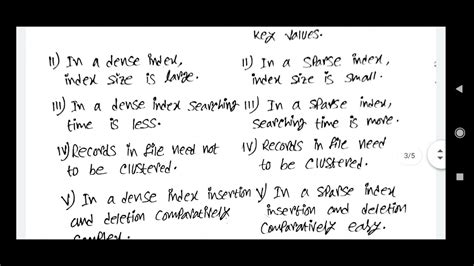 key values.
II) In a dense index,
index size is large.
II) In a sparse index,
index size is small.
III) In a dense index searching
time is less.
III) In a sparse index,
searching time is more.
IV) Records in file need not
to be clustered.
IV) Records in file need
to be clustered.
V) In a dense index insertion
and deletion comparatively
complex.
V) In a sparse index
insertion and deletion
comparatively easy.
3/5